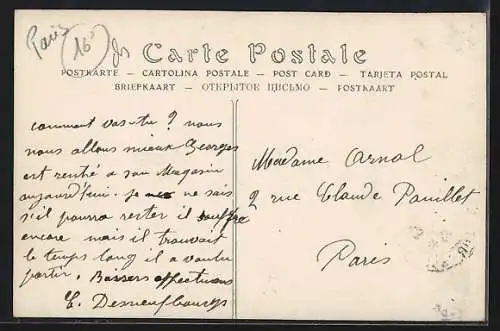 Paris
16e
Carte Postale
POSTKARTE — CARTOLINA POSTALE — POST CARD — TARJETA POSTAL
BRIEFKAART — ОТКРЫТОЕ ПИСЬМО — POSTKAART
comment vas-tu ? nous
nous allons mieux Georges
est rentré a son Magasin
aujourd'hui. je ne sais
s'il pourra rester il souffre
encore mais il trouvait
le temps long il a voulu
partir. Baisers affectueux
E.
Madame Arnal
2 rue Claude Pouillet
Paris